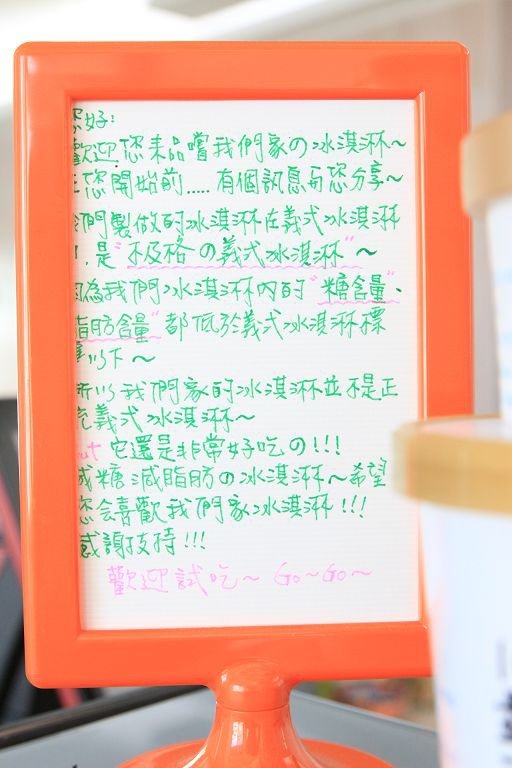 您好:
歡迎您來品嚐我們家の冰淇淋~
在您開始前.....有個訊息再您分享~
我們製做的冰淇淋在義式冰淇淋
中,是"不及格の義式冰淇淋"~
因為我們冰淇淋內的"糖含量"、
"脂肪含量"都低於義式冰淇淋標
準以下~
所以我們家的冰淇淋並不是正
統義式冰淇淋~
but 它還是非常好吃の!!!
減糖減脂肪の冰淇淋~希望
您会喜歡我們家冰淇淋!!!
感謝支持!!!
歡迎試吃~ Go~Go~